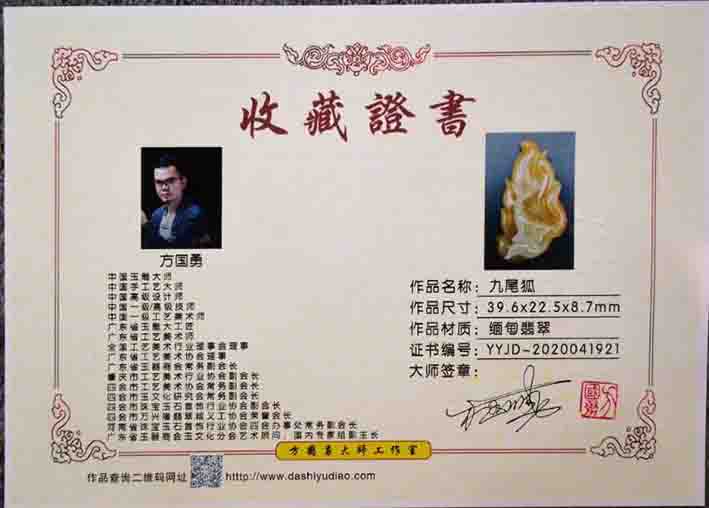 收藏證書
方国勇
中国玉雕大师
中国手工艺大师
中国高级设计师
中国一级/高级技师
中国一级工艺美术师
广东省玉雕大工匠
广东省工艺美术师
全国工艺美术行业理事会理事
广东省工艺美术协会理事
广东省玉器商会常务副会长
肇庆市工艺美术行业协会副会长
四会市工艺美术协会常务副会长
四会市玉文化研究会常务副会长
四会市珠宝玉石首饰行业协会副会长
四会市万兴隆翡翠城义工协会荣誉会长
河南省珠宝玉石首饰行业协会四会办事处常务副会长
广东省玉器商会玉文化分会艺术顾问，国内专家组副主任
作品名称：九尾狐
作品尺寸：39.6x22.5x8.7mm
作品材质：缅甸翡翠
证书编号：YYJD-2020041921
大师签章：
方國勇大师工作室
作品查询二维码网址 http://www.dashiyudiao.com